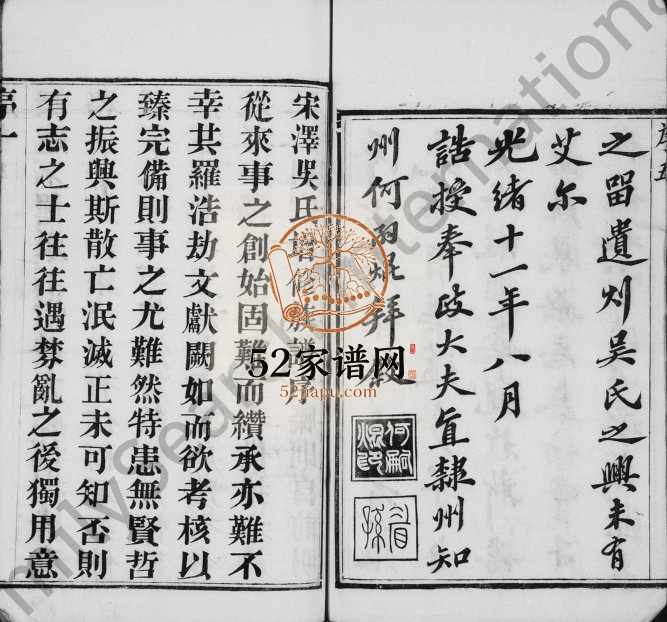 之留遺則吳氏之興未有
艾尔
光緒十一年八月
誥授奉政大夫直隸州知
州何嗣焜拜敘
何嗣
焜印
眉
孫
宋澤吳氏譜修族譜序
從來事之創始固難而纘承亦難不
幸其羅浩劫文獻闕如而欲考核以
臻完備則事之尤難然特患無賢哲
之振興斯散亡泯滅正未可知否則
有志之士往往遇棼亂之後獨用意
序一
52家谱网
52jiapu.com